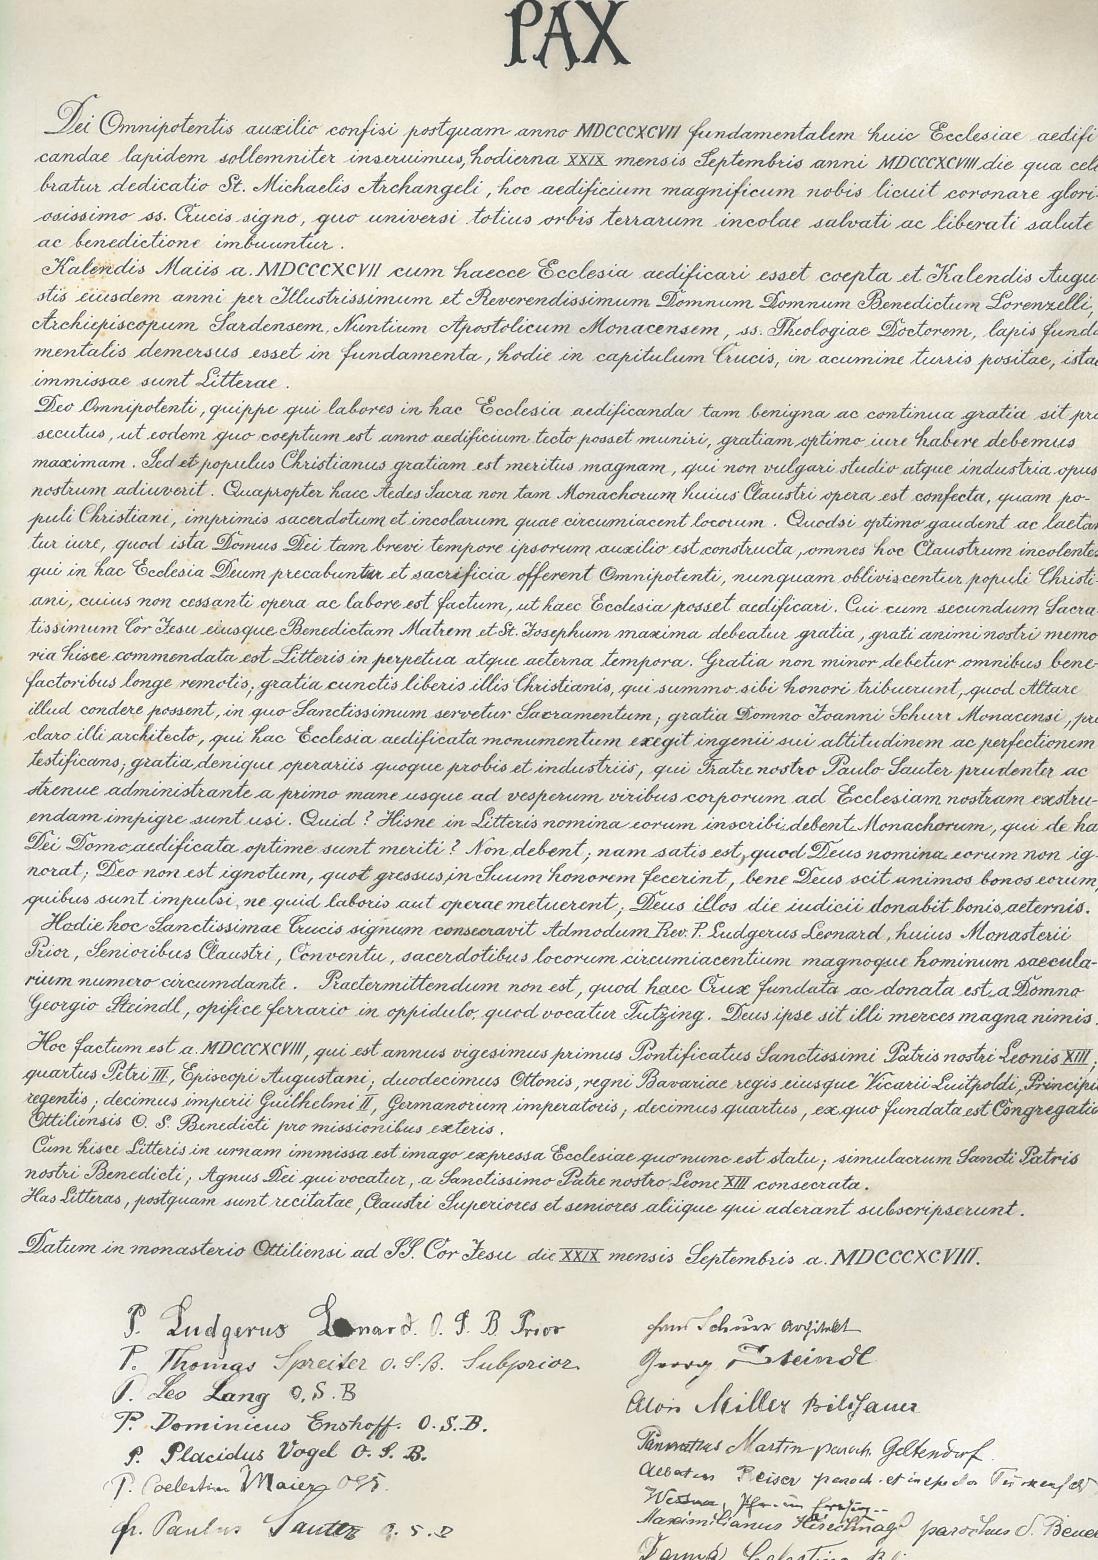 PAX
Dei Omnipotentis auxilio confisi postquam anno MDCCCXCVII fundamentalem huic Ecclesiae aedifi
candae lapidem sollemniter inseruimus, hodierna XXIX mensis Septembris anni MDCCCXCVIII die qua cele
bratur dedicatio St. Michaelis Archangeli, hoc aedificium magnificum nobis licuit coronare glori-
osissimo ss. Crucis signo, quo universi totius orbis terrarum incolae salvati ac liberati salute
ac benedictione imbuuntur.
Kalendis Maiis a. MDCCCXCVII cum haecce Ecclesia aedificari esset coepta et Kalendis Augu-
stis eiusdem anni per Illustrissimum et Reverendissimum Domnum Domnum Benedictum Lorenzelli,
Archiepiscopum Sardensem, Nuntium Apostolicum Monacensem, ss. Theologiae Doctorem, lapis funda
mentalis demersus esset in fundamenta, hodie in capitulum Crucis, in acumine turris positae, istae
immissae sunt Litterae.
Deo Omnipotenti, quippe qui labores in hac Ecclesia aedificanda tam benigna ac continua gratia sit pro
secutus, ut eodem quo coeptum est anno aedificium tecto posset muniri, gratiam optimo iure habere debemus
maximam. Sed et populus Christianus gratiam est meritus magnam, qui non vulgari studio atque industria opus
nostrum adiuverit. Quapropter haec Aedes Sacra non tam Monachorum huius Claustri opera est confecta, quam po-
puli Christiani, imprimis sacerdotum et incolarum quae circumiacent locorum. Quodsi optimo gaudent ac laetan
tur iure, quod ista Domus Dei tam brevi tempore ipsorum auxilio est constructa, omnes hoc Claustrum incolentes
qui in hac Ecclesia Deum precabuntur et sacrificia offerent Omnipotenti, nunquam obliviscentur populi Christi-
ani, cuius non cessanti opera ac labore est factum, ut haec Ecclesia posset aedificari. Cui cum secundum Sacra-
tissimum Cor Jesu eiusque Benedictam Matrem et St. Josephum maxima debeatur gratia, grati animi nostri memo
ria hisce commendata est Litteris in perpetua atque aeterna tempora. Gratia non minor debetur omnibus bene-
factoribus longe remotis, gratia cunctis liberis illis Christianis, qui summo sibi honori tribuerunt, quod Altare
illud condere possent, in quo Sanctissimum servetur Sacramentum; gratia Domno Joanni Schurr Monacensi, prae
claro illi architecto, qui hac Ecclesia aedificata monumentum exegit ingenii sui altitudinem ac perfectionem
testificans; gratia denique operariis quoque probis et industriis, qui Fratre nostro Paulo Sauter prudenter ac
strenue administrante a primo mane usque ad vesperum viribus corporum ad Ecclesiam nostram exstru-
endam impigre sunt usi. Quid? Hisne in Litteris nomina eorum inscribi debent Monachorum, qui de hac
Dei Domo aedificata optime sunt meriti? Non debent; nam satis est, quod Deus nomina eorum non ig-
norat; Deo non est ignotum, quot gressus in Suum honorem fecerint, bene Deus scit animos bonos eorum,
quibus sunt impulsi, ne quid laboris aut operae metuerent; Deus illos die iudicii donabit bonis aeternis.
Hodie hoc Sanctissimae Crucis signum consecravit Admodum Rev. P. Ludgerus Leonard, huius Monasterii
Prior, Senioribus Claustri, Conventu, sacerdotibus locorum circumiacentium magnoque hominum saecula-
rium numero circumdante. Praetermittendum non est, quod haec Crux fundata ac donata est a Domno
Georgio Steindl, opifice ferrario in oppidulo, quod vocatur Tutzing. Deus ipse sit illi merces magna nimis.
Hoc factum est a. MDCCCXCVIII, qui est annus vigesimus primus Pontificatus Sanctissimi Patris nostri Leonis XIII;
quartus Petri III, Episcopi Augustani; duodecimus Ottonis, regni Bavariae regis eiusque Vicarii Luitpoldi, Principis
regentis; decimus imperii Guilhelmi II, Germanorum imperatoris; decimus quartus, ex quo fundata est Congregatio
Ottiliensis O. S. Benedicti pro missionibus exteris.
Cum hisce Litteris in urnam immissa est imago expressa Ecclesiae quo nunc est statu; simulacrum Sancti Patris
nostri Benedicti; Agnus Dei qui vocatur, a Sanctissimo Patre nostro Leone XIII consecrata.
Has Litteras, postquam sunt recitatae, Claustri Superiores et seniores aliique qui aderant subscripserunt.
Datum in monasterio Ottiliensi ad SS. Cor Jesu die XXIX mensis Septembris a. MDCCCXCVIII.
P. Ludgerus Leonard. O. S. B. Prior
P. Thomas Spreiter O.S.B. Subprior
P. Leo Lang O.S.B
P. Dominicus Enshoff. O.S.B.
P. Placidus Vogel O.S.B.
P. Coelestin Maier OSB.
fr. Paulus Sauter O.S.B
Hans Schurr Architekt
Georg Steindl
Alois Miller Bildhauer
Pancratius Martin paroch. Geltendorf
Reiser paroch. et
Maximilianus parochus S.